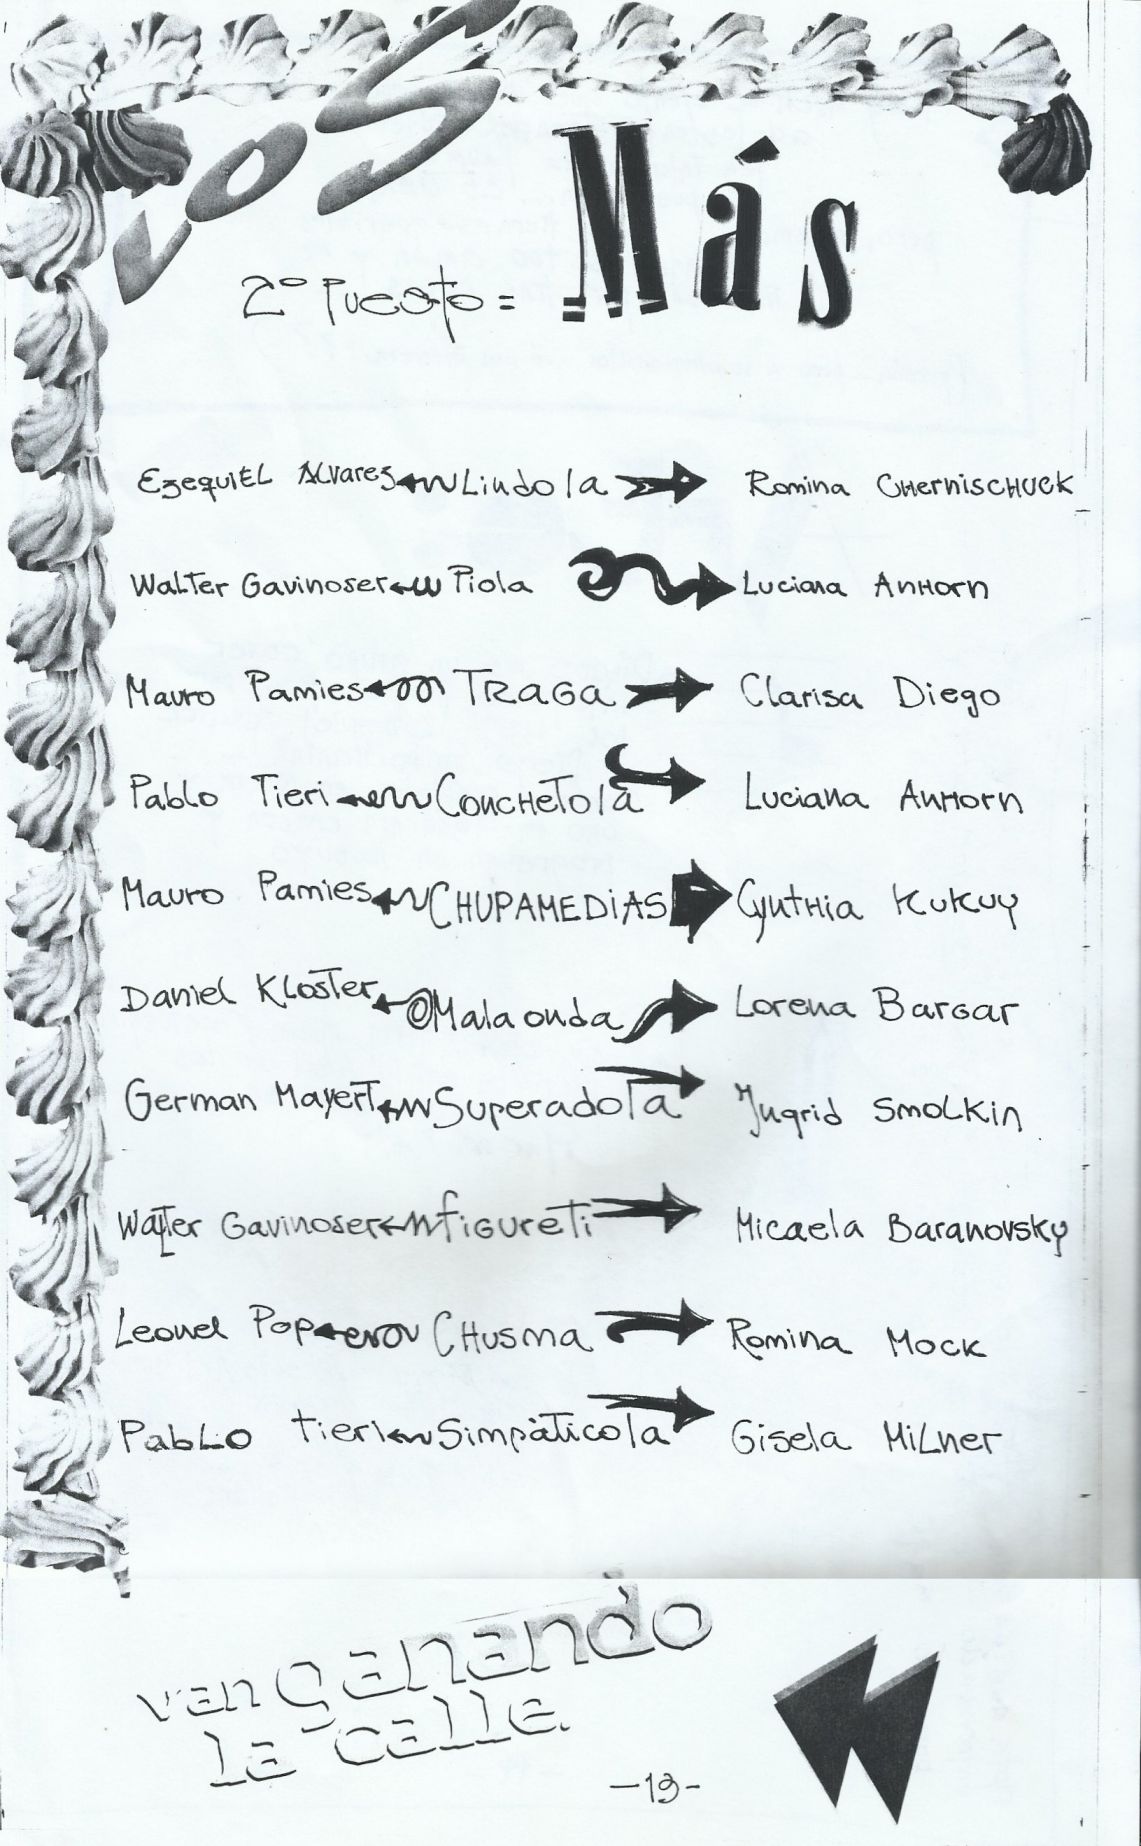 LOS
Más
2º Puesto =
Ezequiel Alvarez Lindo/a Romina Chernischuck
Walter Gavinoser Piola Luciana Anhorn
Mauro Pamies TRAGA Clarisa Diego
Pablo Tieri Concheto/a Luciana Anhorn
Mauro Pamies CHUPAMEDIAS Cynthia Kukuy
Daniel Kloster Mala onda Lorena Bargar
German Mayert Superado/a Ingrid Smolkin
Walter Gavinoser figureti Micaela Baranovsky
Leonel Pop Chusma Romina Mock
Pablo Tieri Simpático/a Gisela Milner
van ganando
la calle.
-19-